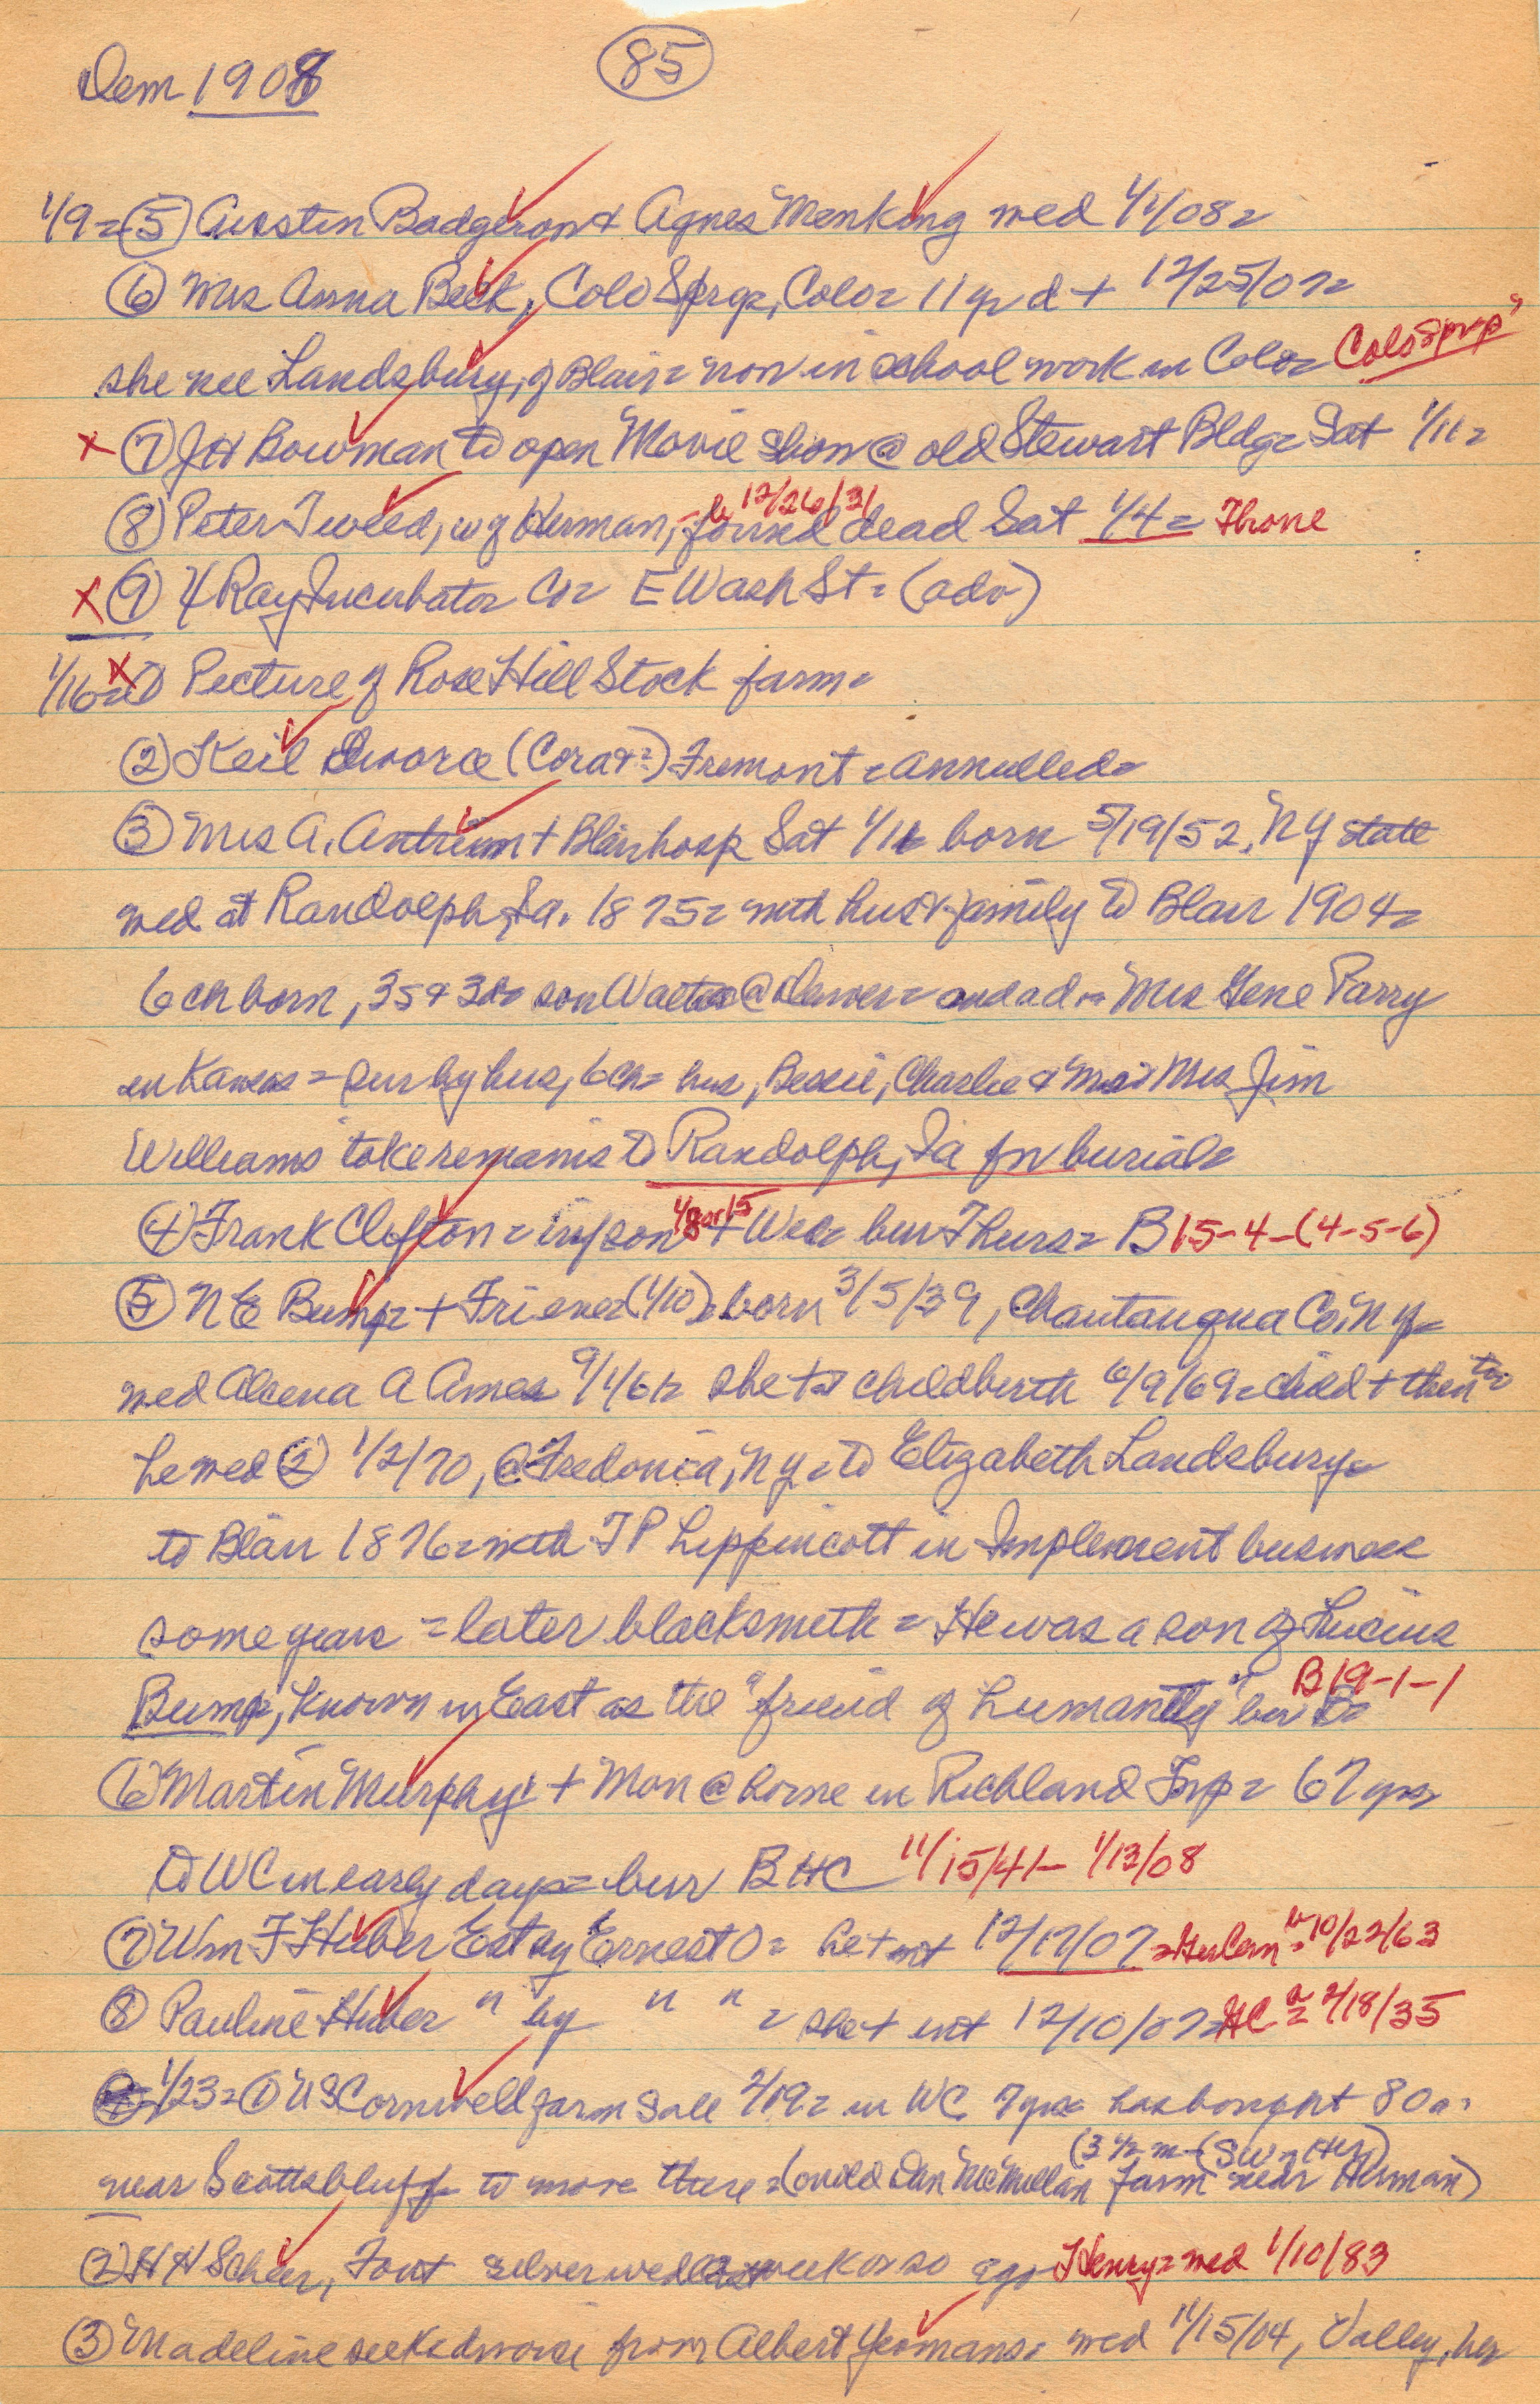 Dem 1908
85
1/9= ⑤ Austin Badgerow + Agnes Menking wed 1/1/08=
⑥ Mrs Anna Beck, Colo Sprgs, Colo= 11 yr d + 12/25/07=
she nee Landsbury, of Blair= now in school work in Colo= Colo Sprgs"
x ⑦ JH Bowman to open Movie Show @ old Stewart Bldg= Sat 1/11=
⑧ Peter Tweed, w of Herman, found dead Sat 1/4= - b 12/26/31
x ⑨ X Ray Incubator Co= E Wash St= (adv)
1/16= x ① Picture of Rose Hill Stock farm=
② Keil divorce (Cora & ?) Fremont = annulled=
③ Mrs A. Antrim + Blair hosp Sat 1/11 born 5/19/52, NY state
wed at Randolph, Ia. 1875= with hus & family to Blair 1904=
6 ch born, 3s & 3d= son Walter @ Denver= and a d= Mrs Gene Parry
in Kansas = sur by hus, 6 ch= hus, Bessie, Charlie & Mrs Jim
Williams take remains to Randolph, Ia for burial=
④ Frank Clifton= inf son 1/8 or 15 + Wed= bur Thurs= B 15-4-(4-5-6)
⑤ N E Bump= + Friend (1/10)= born 3/5/39, Chautauqua Co, NY=
wed Alcena A Ames 9/1/61= she + at childbirth 6/9/69= child + then too
he wed ② 1/2/70, @ Fredonia, NY= to Elizabeth Landsbury=
to Blair 1876= with T P Lippincott in Implement business
some years = later blacksmith = He was a son of Lucius
Bump, known in East as the "friend of humanity" bur B= B 19-1-1
⑥ Martin Murphy + Mon @ home in Richland Twp= 67 yrs
to WC in early days= bur B HC 11/15/41- 1/13/08
⑦ Wm F Huber Est by Ernest O= he + int 12/17/07 = b 10/22/63
⑧ Pauline Huber " by " " = she + int 12/10/07= HC = 2/18/35
1/23= ① W S Cornwell farm sale 2/19= in WC 7 yrs= has bought 80 a.
(3 1/2 m- (SW of Her)
near Scottsbluff to move there= (on old Dan McMullan farm near Herman)
② H H Scheer, Font silver wed a week or so ago Henry= wed 1/10/83
③ Madeline seeks divorce from Albert Yeomans. wed 11/15/04, Valley, her